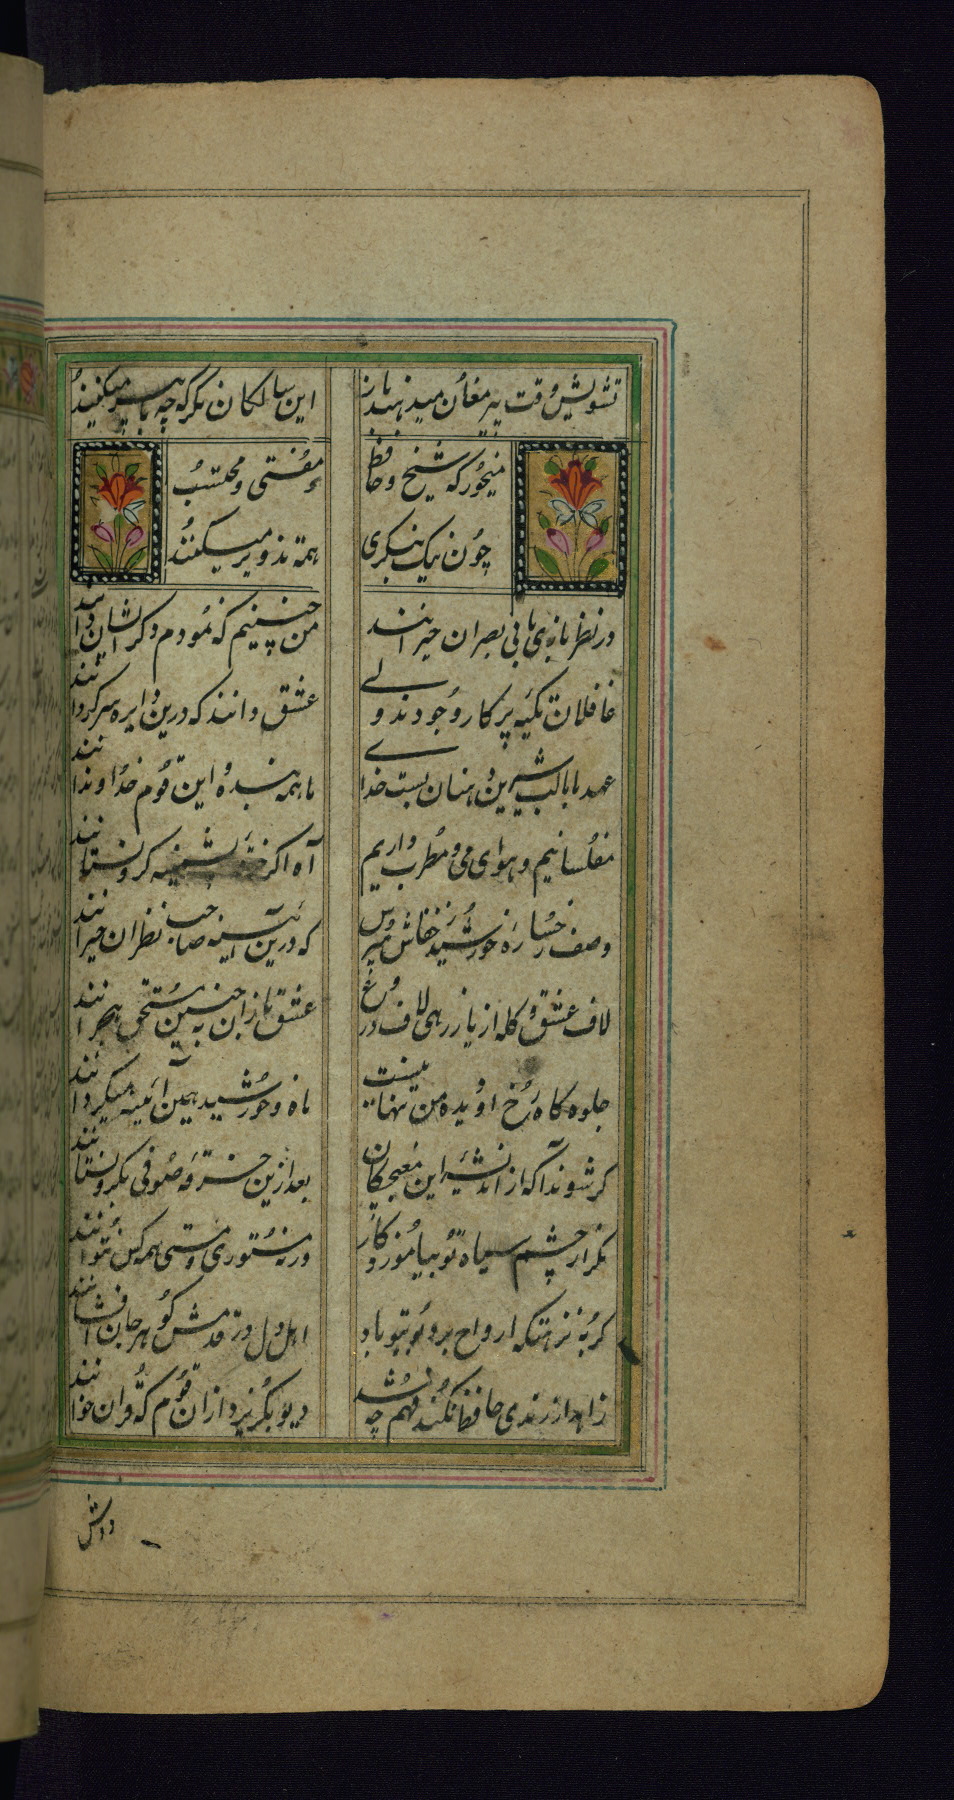 تشویش وقت پیر مغان میدهند باز
این سالکان نگر که چه با پیر میکنند
میخور که شیخ و حافظ
و مفتی و محتسب
چون نیک بنگری
همه تذویر میکنند
در نظر بازی ما بی بصران حیرانند
من چنینم که نمودم دگر ایشان دانند
غافلان تکیه پرکار وجودند ولی
عشق داند که درین دایره سرگردانند
عهد ما با لب شیرین دهنان بست خدای
ما همه بنده و این قوم خداوندانند
مفلسانیم و هوای می و مطرب داریم
آه اگر خرقه پشمینه گرو نستانند
وصف رخساره خورشید ز خفاش مپرس
که درین آینه صاحب نظران حیرانند
لاف عشق و گله از یار زهی لاف دروغ
عشق بازان چنین مستحق هجرانند
جلوه گاه رخ او دیده من تنها نیست
ماه و خورشید همین آئینه میگردانند
گر شوند آگه از اندیشه این مغبچگان
بعد ازین خرقه صوفی بگرو نستانند
مگر از چشم سیاه تو بیاموزد کار
ورنه مستوری و مستی همه کس نتوانند
گر به نزهتگه ارواح برد بوی تو باد
اهل دل در قدمش گوهر جان افشانند
زاهد از رندی حافظ نکند فهم چه شد
دیو بگریزد از آن قوم که قرآن خوانند
دوش